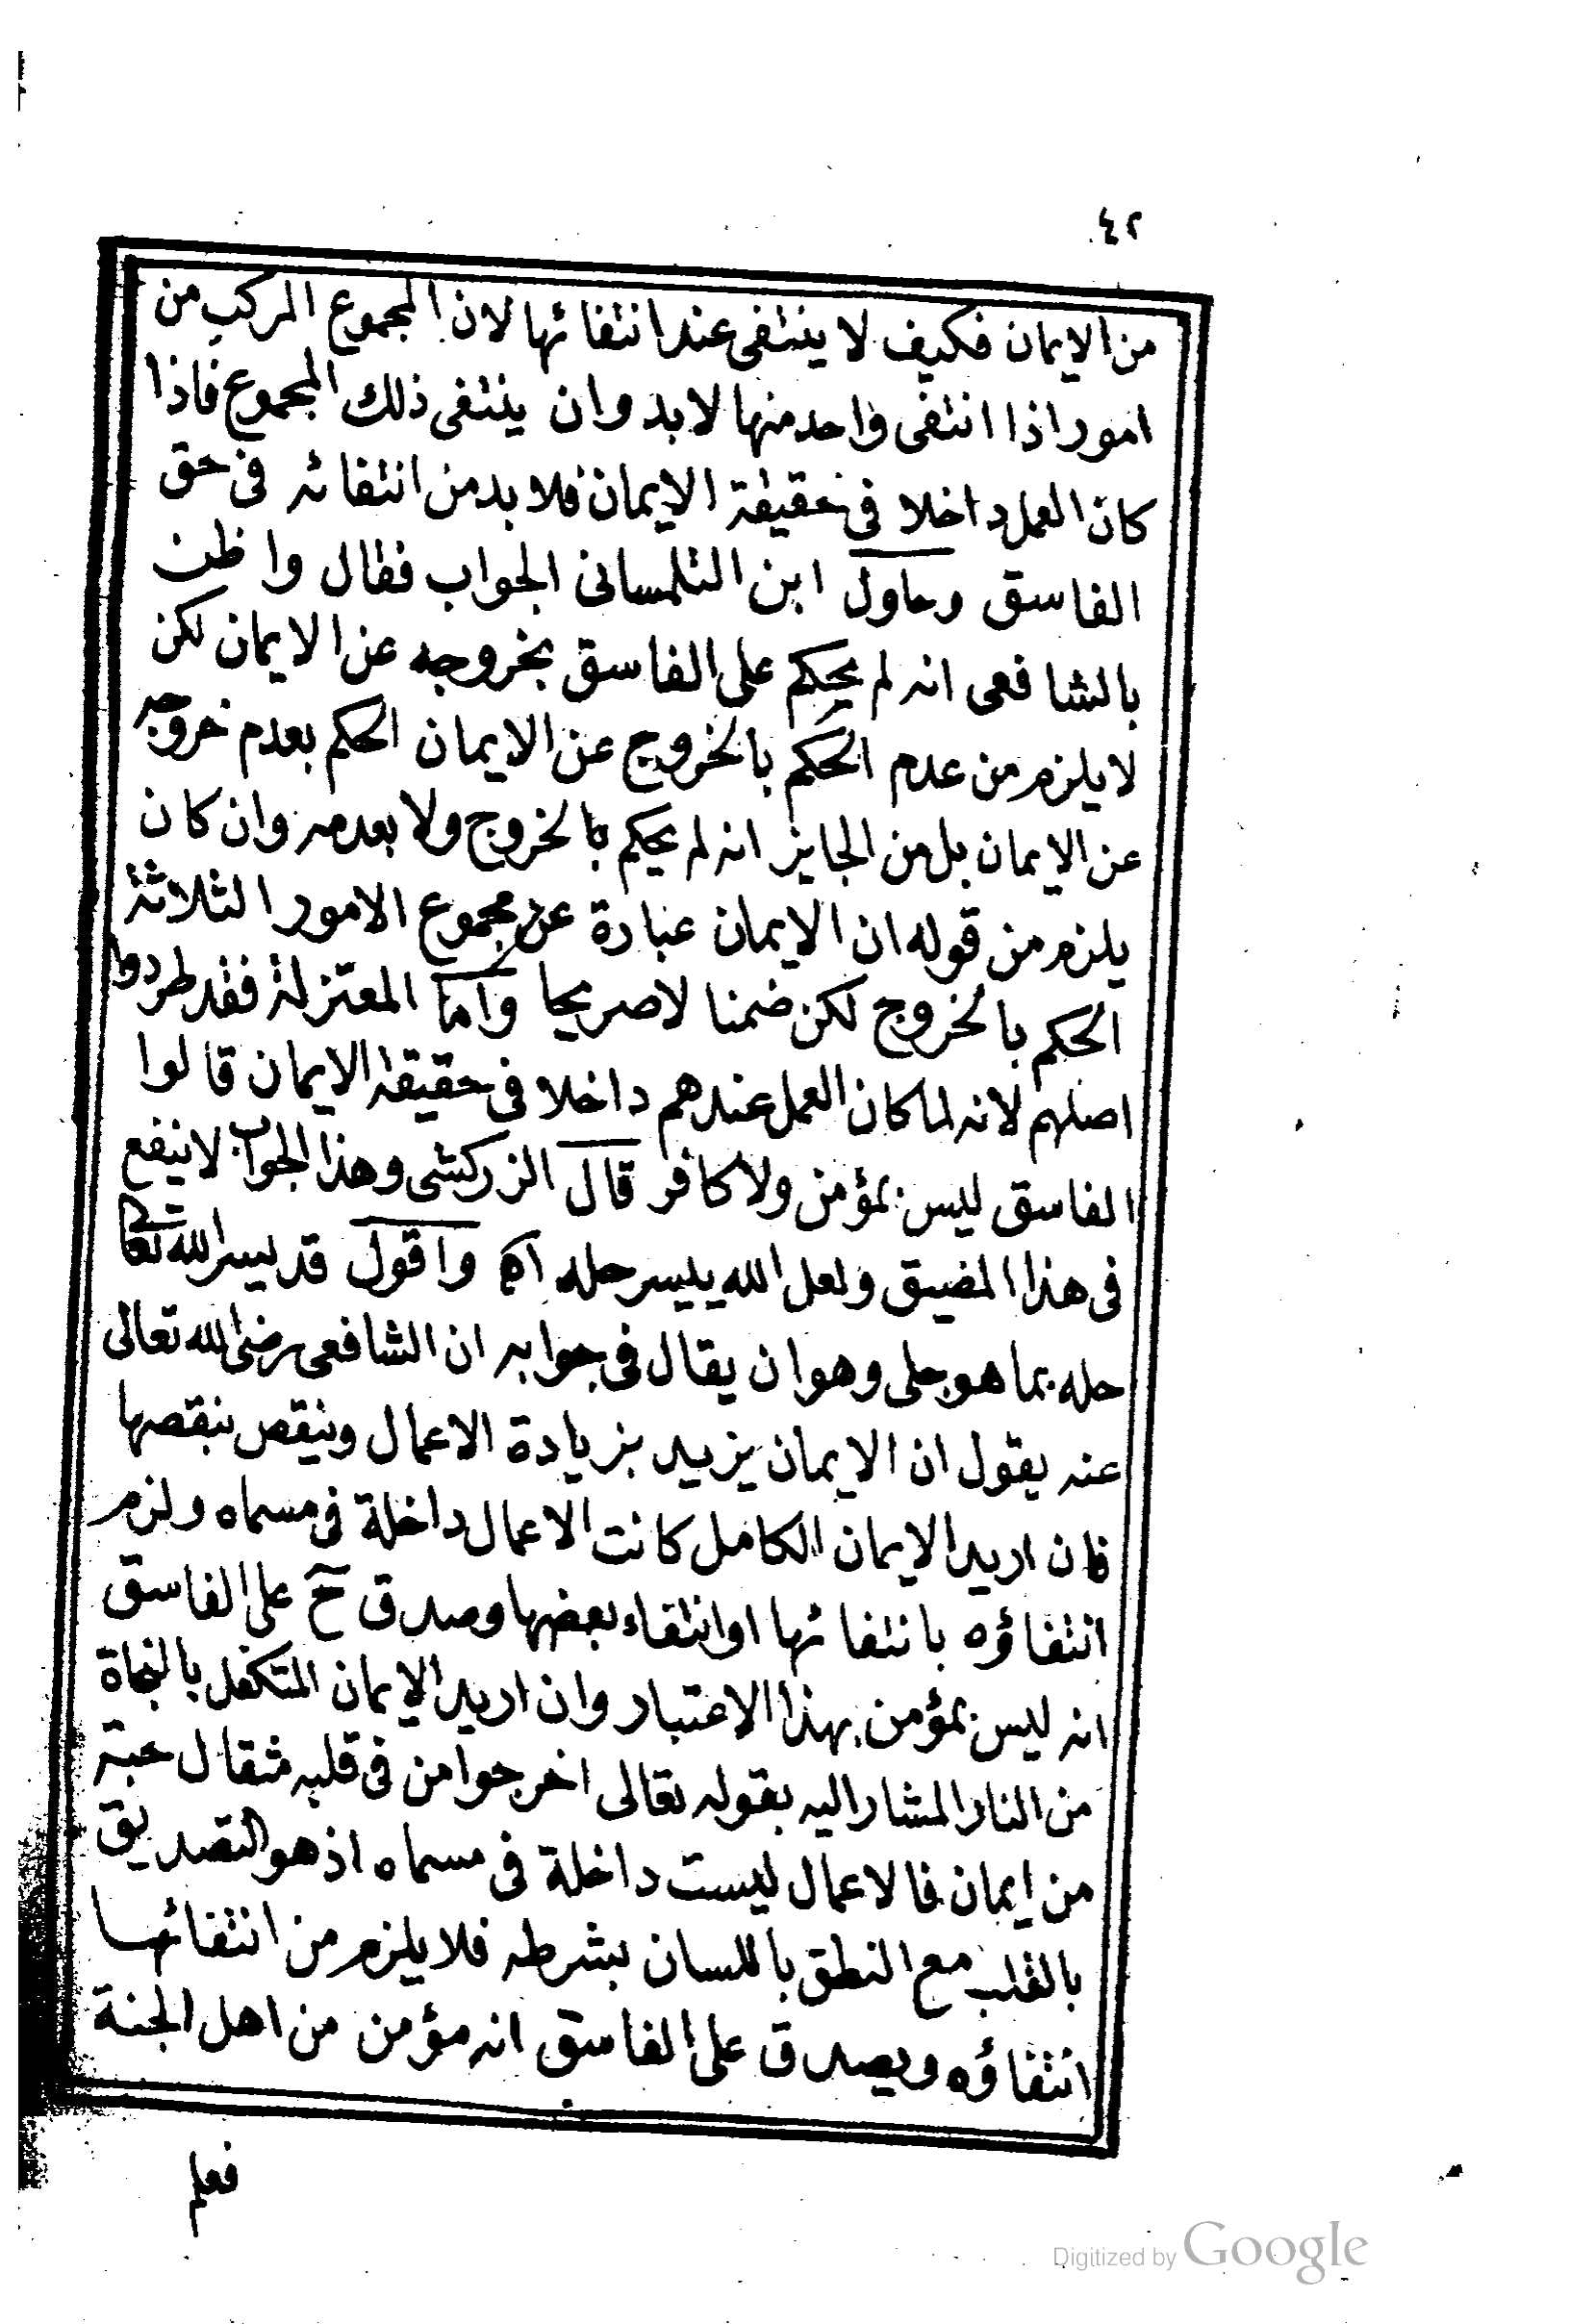 ٤٢
من الايمان فكيف لا ينتفى عند انتفائها لان المجموع المركب من
امور اذا انتفى واحد منها لابد وان ينتفى ذلك المجموع فاذا
كان العمل داخلا فى حقيقة الايمان فلابد من انتفائه فى حق
الفاسق وحاول ابن التلمسانى الجواب فقال واظن
بالشافعى انه لم يحكم على الفاسق بخروجه عن الايمان لكن
لا يلزم من عدم الحكم بالخروج عن الايمان الحكم بعدم خروجه
عن الايمان بل من الجايز انه لم يحكم بالخروج ولا بعدمه وان كان
يلزم من قوله ان الايمان عبارة عن مجموع الامور الثلاثة
الحكم بالخروج لكن ضمنا لا صريحا واما المعتزلة فقد طردوا
اصلهم لانه لما كان العمل عندهم داخلا فى حقيقة الايمان قالوا
الفاسق ليس بمؤمن ولا كافر قال الزركشى وهذا الجواب لا ينفع
فى هذا المضيق ولعل الله ييسر حله اه واقول قد يسر الله تعالى
حله بما هو جلى وهو ان يقال فى جوابه ان الشافعى رضى الله تعالى
عنه يقول ان الايمان يزيد بزيادة الاعمال وينقص بنقصها
فان اريد الايمان الكامل كانت الاعمال داخلة فى مسماه ولزم
انتفاؤه بانتفائها او انتفاء بعضها وصدق ح على الفاسق
انه ليس بمؤمن بهذا الاعتبار وان اريد الايمان المتكفل بالنجاة
من النار المشار اليه بقوله تعالى اخرجوا من فى قلبه مثقال حبة
من ايمان فالاعمال ليست داخلة فى مسماه اذ هو التصديق
بالقلب مع النطق باللسان بشرطه فلا يلزم من انتفائها
انتفاؤه ويصدق على الفاسق انه مؤمن من اهل الجنة
فعلم
Digitized by Google